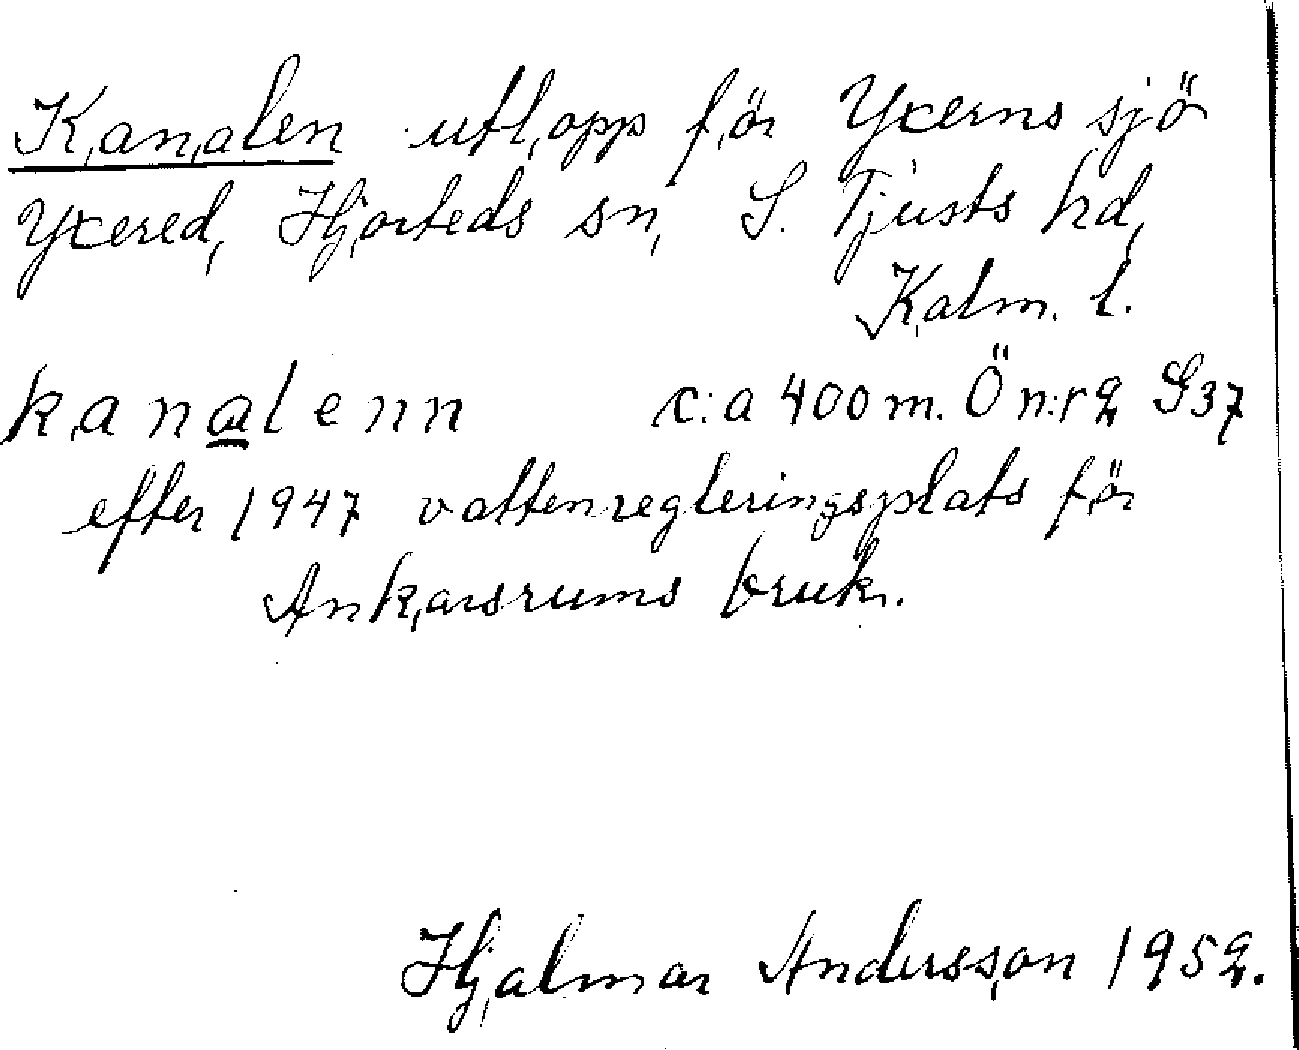 Kanalen utlopp för Yxerns sjö
Yxered, Hjorteds sn, S. Tjusts hd,
Kalm. l.
kanalenn c:a 400 m. Ö n:r 2 S37
efter 1947 vattenregleringsplats för
Ankarsrums bruk.
Hjalmar Andersson 1952.